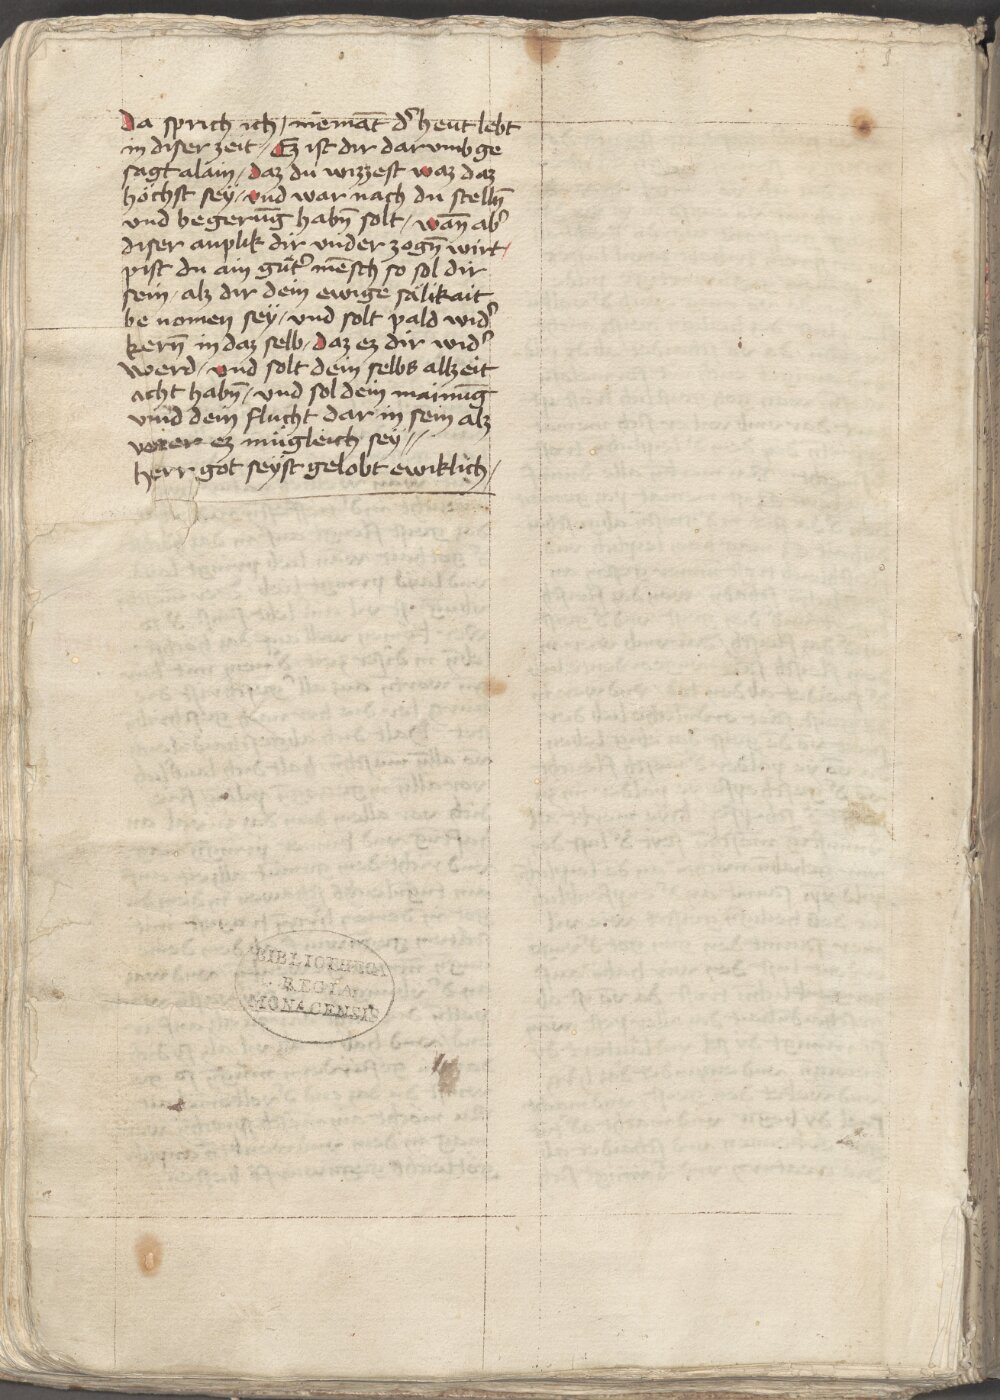 Da sprich ich / niemāt d' heut lebt
in diser zeit / Ez ist dir dar vmb ge
sagt alain / daz du wizzest waz daz
höchst sey / vnd war nach du stelln̄
vnd begerūg habn̄ solt / wan̄ ab'
diser anplik dir vnder zogn̄ wirt /
pist du ain gūt' mēsch so sol dir
sein / alz dir dein ewige sälikait
be nomen sey / vnd solt pald wid'
kern̄ in daz selb / daz ez dir wid'
werd / vnd solt dein selbs allzeit
acht habn̄ / vnd sol dein mainūg
vnd dein flucht dar in sein alz
ez mügleich sey //
herr got seyst gelobt ewiklich /
BIBLIOTHECA
REGIA
MONACENSIS